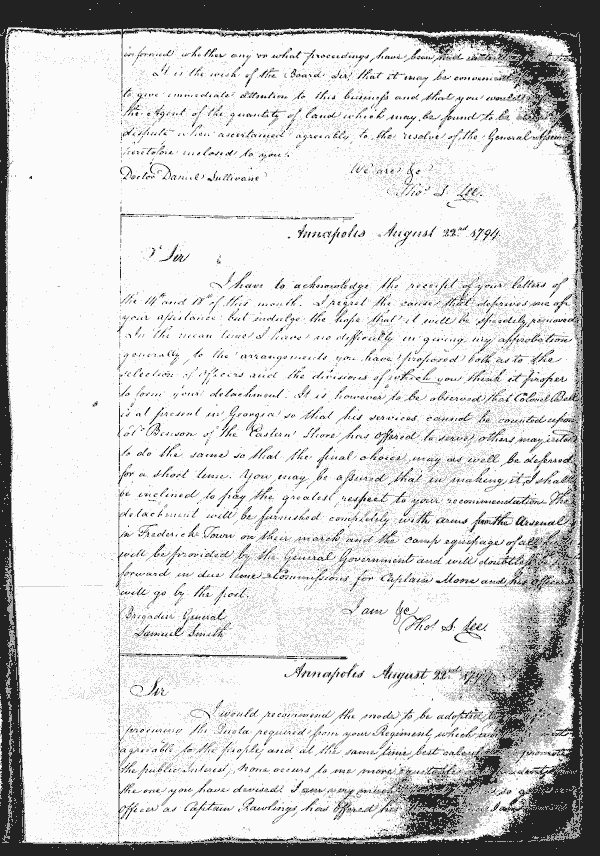 informed whether any or what proceedings, have been had
It is the wish of the Board Sir, that it may be convenient
to give immediate attention to this business and that you would
the Agent of the quantity of land which may be found to be
dispute when ascertained agreeably to the resolve of the General
heretofore inclosed to you.
We are &c
Doctor Daniel Sullivane
Tho.s S. Lee.
Annapolis August 22.nd 1794
Sir
I have to acknowledge the receipt of your letters of
the 14th and 18th of this month. I regret the cause that deprives me of
your assistance but indulge the hope that it will be speedily removed
In the mean time I have no difficulty in giving my approbation
generally to the arrangements you have proposed both as to the
selection of officers and the divisions of which you think it proper
to form your detachment. It is however to be observed that Colonel
is at present in Georgia so that his services cannot be counted upon
Col. Benson of the Eastern Shore has offered to serve, others may
to do the same so that the final choice may as well be deferred
for a short time. You may be assured that in making it I shall
be inclined to pay the greatest respect to your recommendation. The
detachment will be furnished completely with arms from the Arsenal
in Frederick Town on their march and the camp equipage of all
will be provided by the General Government and will doubtless be
forward in due time. Commissions for Captain and his officers
will go by the post.
I am &c
Brigadier General
Tho.s S. Lee.
Samuel Smith
Annapolis August 22.nd
Sir
I would recommend the mode to be adopted
procuring the Quota required from your Regiment, which
agreable to the people, and at the same time best
the public interest, None occurs to me more
the one you have devised. I am very
officer as Captain Rawlings, has offered his